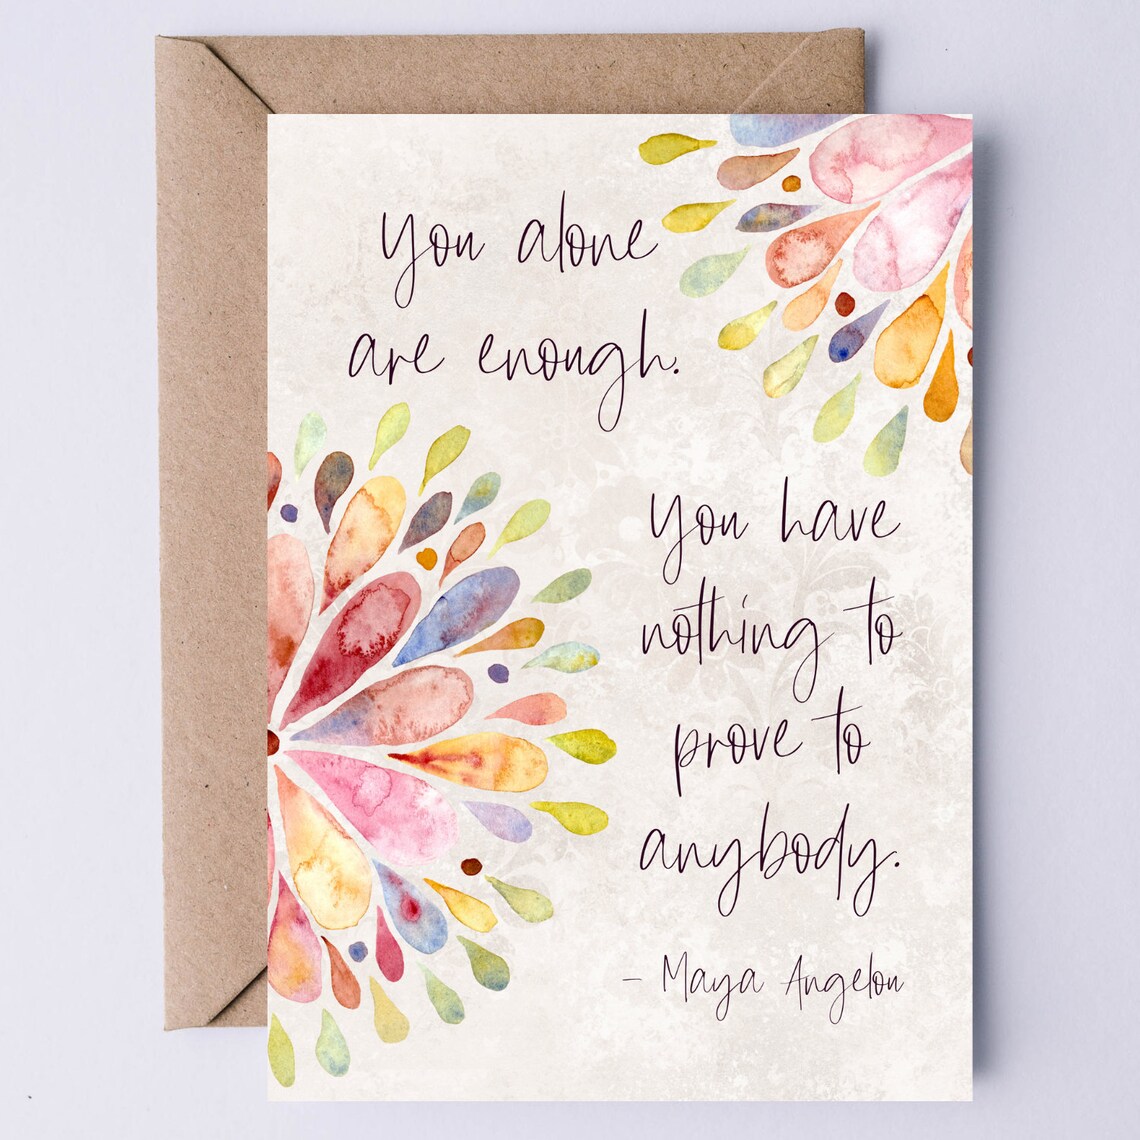 You alone
are enough.
You have
nothing to
prove to
anybody.
- Maya Angelou